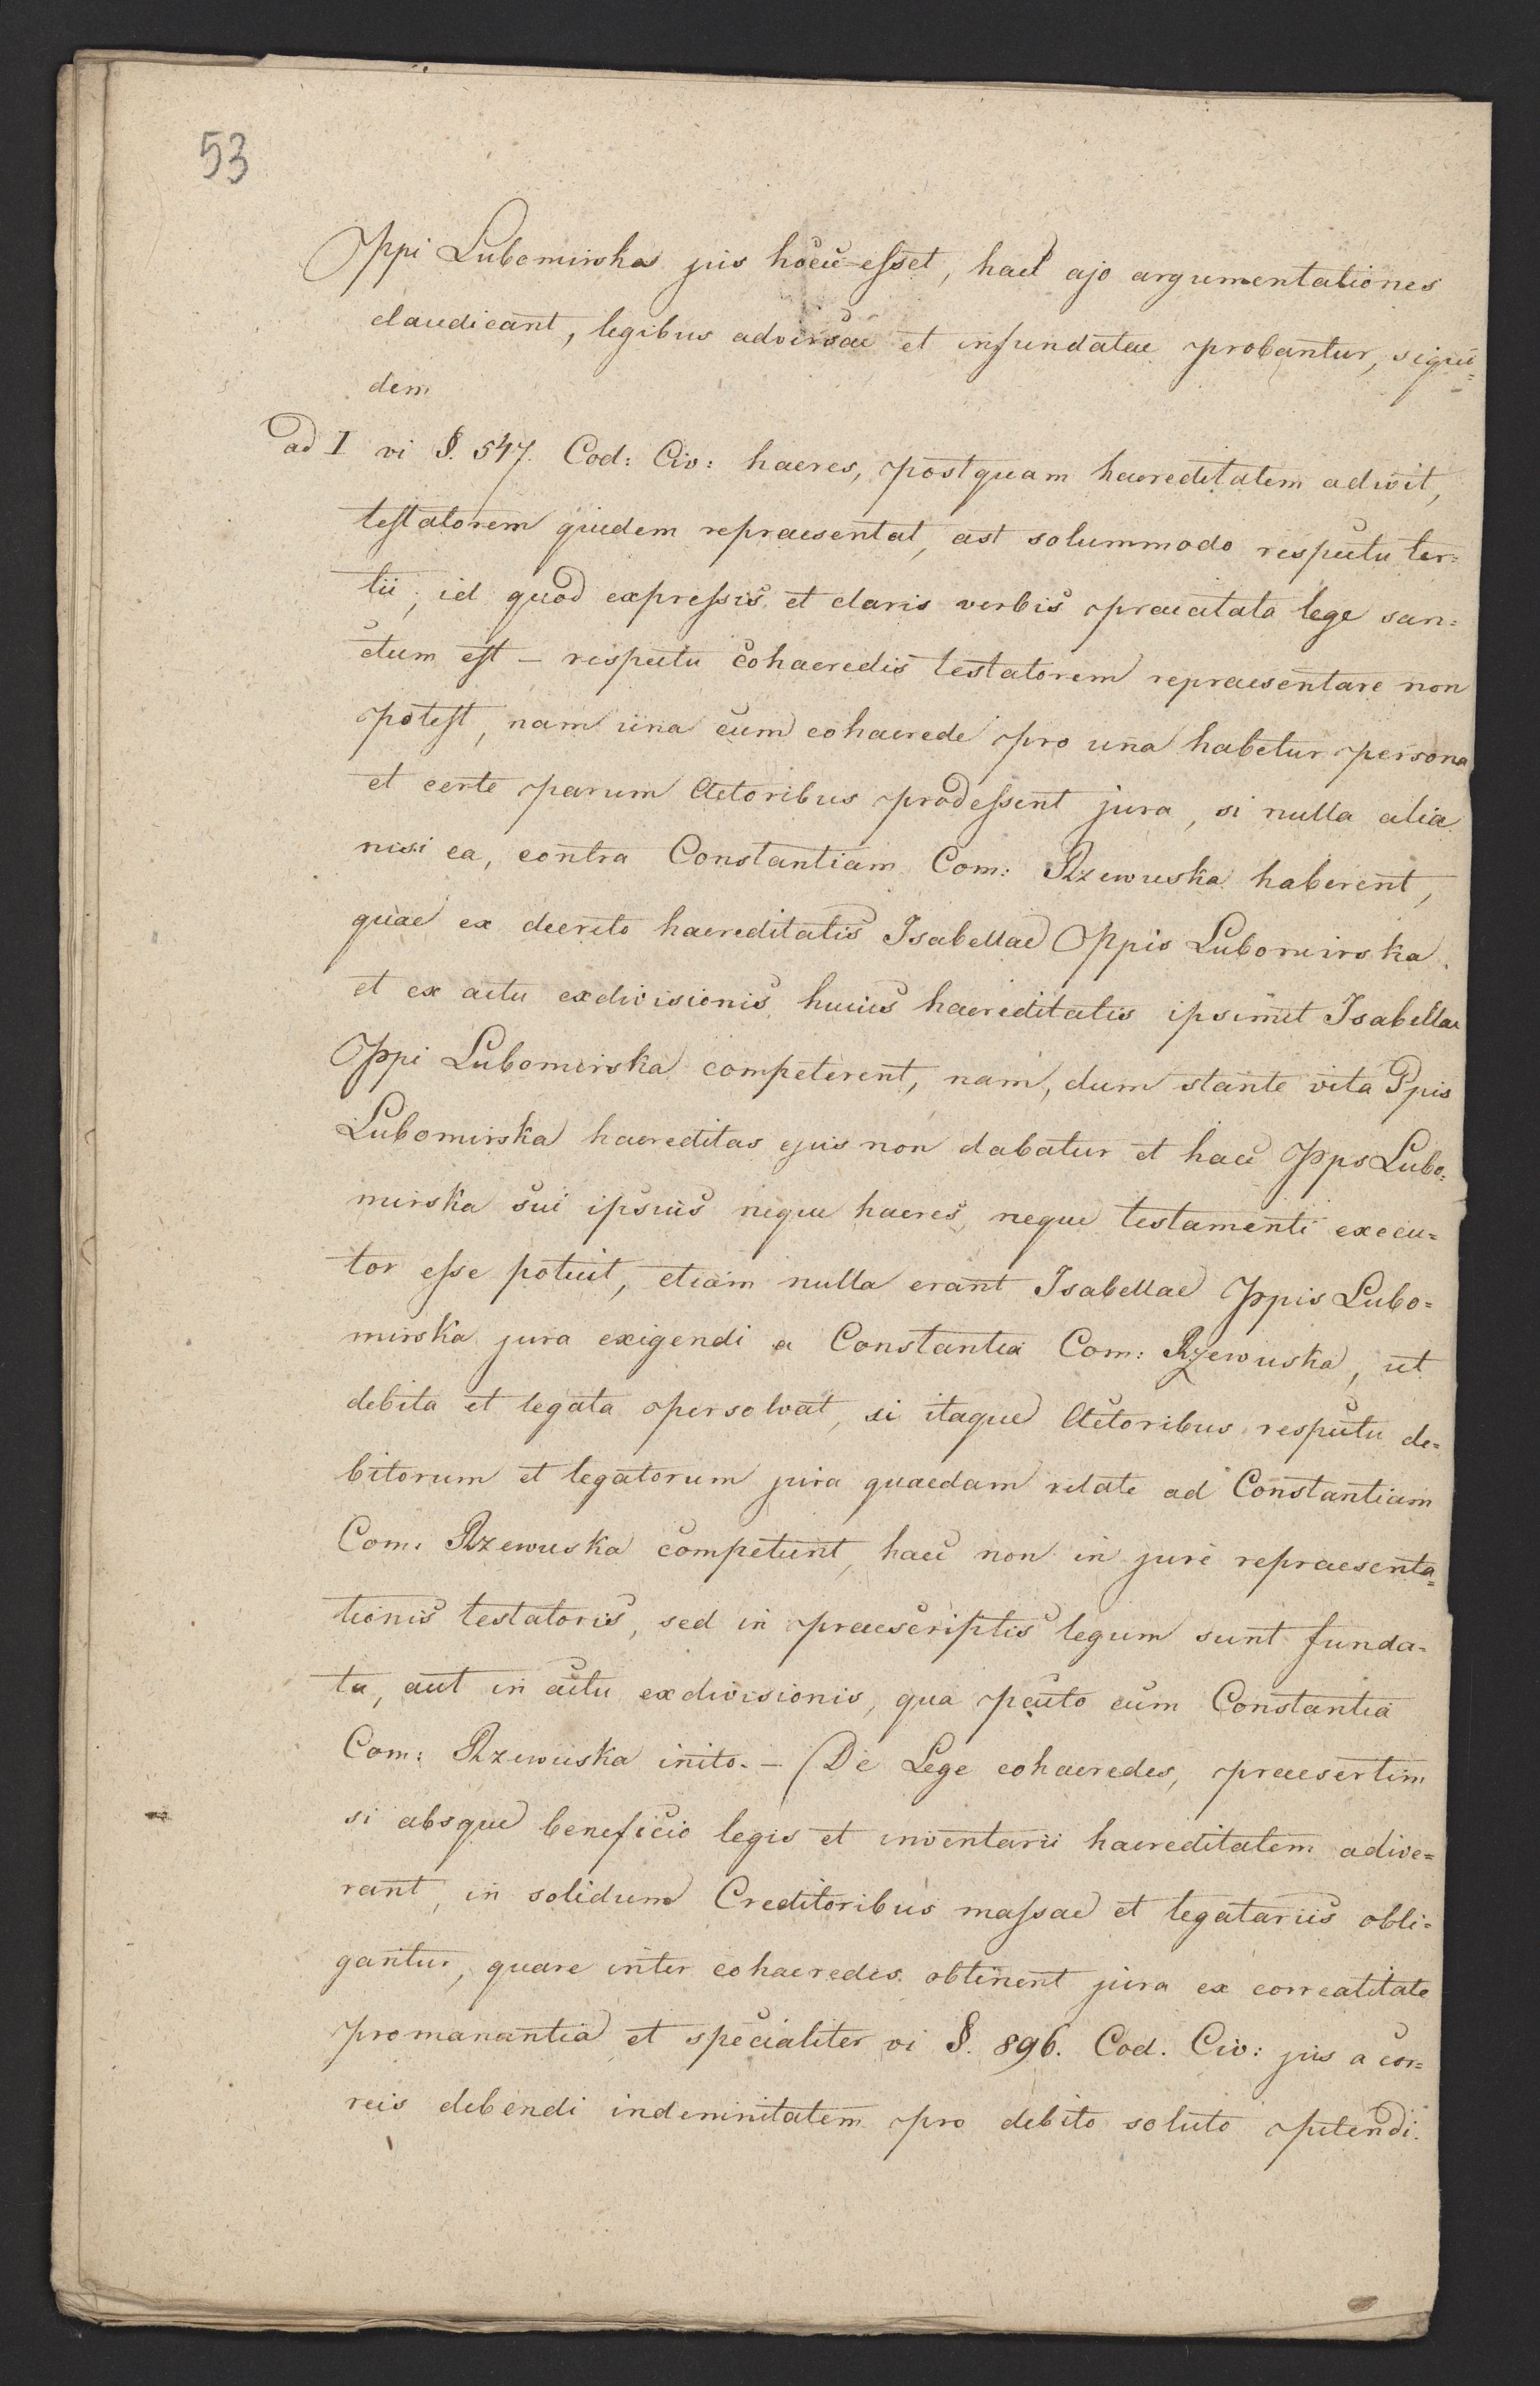 53
Ppi Lubomirska jus hocce esset, haec ajo argumentationes
claudicant, legibus adversae et infundatae probantur, siqui=
dem
ad I vi §. 547. Cod: Civ: haeres, postquam haereditatem adivit,
testatorem quidem repraesentat, ast solummodo respectu ter=
tii, id quod expressis et claris verbis praecitata lege san=
ctum est – respectu cohaeredis testatorem repraesentare non
potest, nam una cum cohaerede pro una habetur persona
et certe parum Actoribus prodessent jura, si nulla alia
nisi ea, contra Constantiam Com: Rzewuska haberent,
quae ex decreto haereditatis Isabellae Ppis Lubomirska
et ex actu exdivisionis hujus haereditatis ipsimet Isabellae
Ppi Lubomirska competerent, nam, dum stante vita Ppis
Lubomirska haereditas ejus non dabatur et haec Pps Lubo=
mirska sui ipsius neque haeres, neque testamenti execu=
tor esse potuit, etiam nulla erant Isabellae Ppis Lubo=
mirska jura exigendi a Constantia Com: Rzewuska, ut
debita et legata persolvat, si itaque Actoribus respectu de=
bitorum et legatorum jura quaedam relate ad Constantiam
Com: Rzewuska competunt, haec non in jure repraesenta=
tionis testatoris, sed in praescriptis legum sunt funda=
ta, aut in actu exdivisionis, qua pacto cum Constantia
Com: Rzewuska inito. – De Lege cohaeredes, praesertim
si absque beneficio legis et inventarii haereditatem adive=
rant, in solidum Creditoribus massae et legatariis obli=
gantur, quare inter cohaeredes obtinent jura ex correalitate
promanantia et specialiter vi §. 896. Cod. Civ: jus a cor=
reis debendi indemnitatem pro debito soluto petendi.